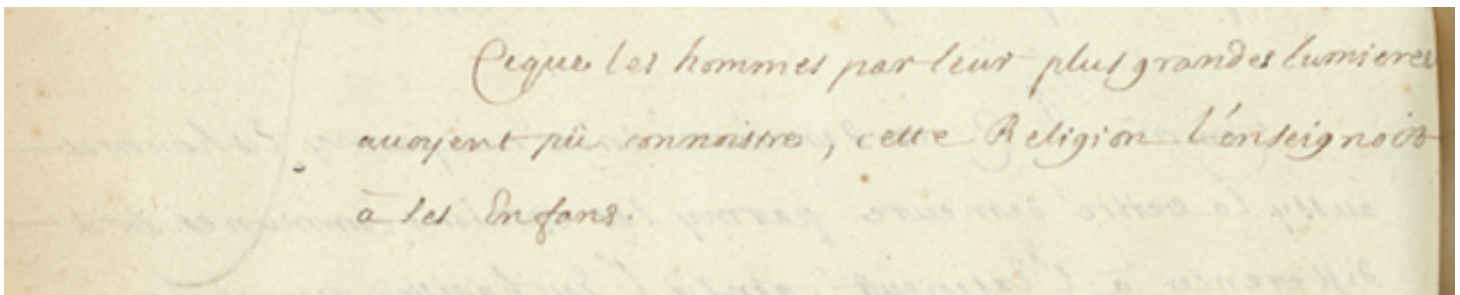 Ceque les hommes par leur plus grandes lumieres
auoyent pü connoistre, cette Religion l'enseignoit
a ses Enfans.